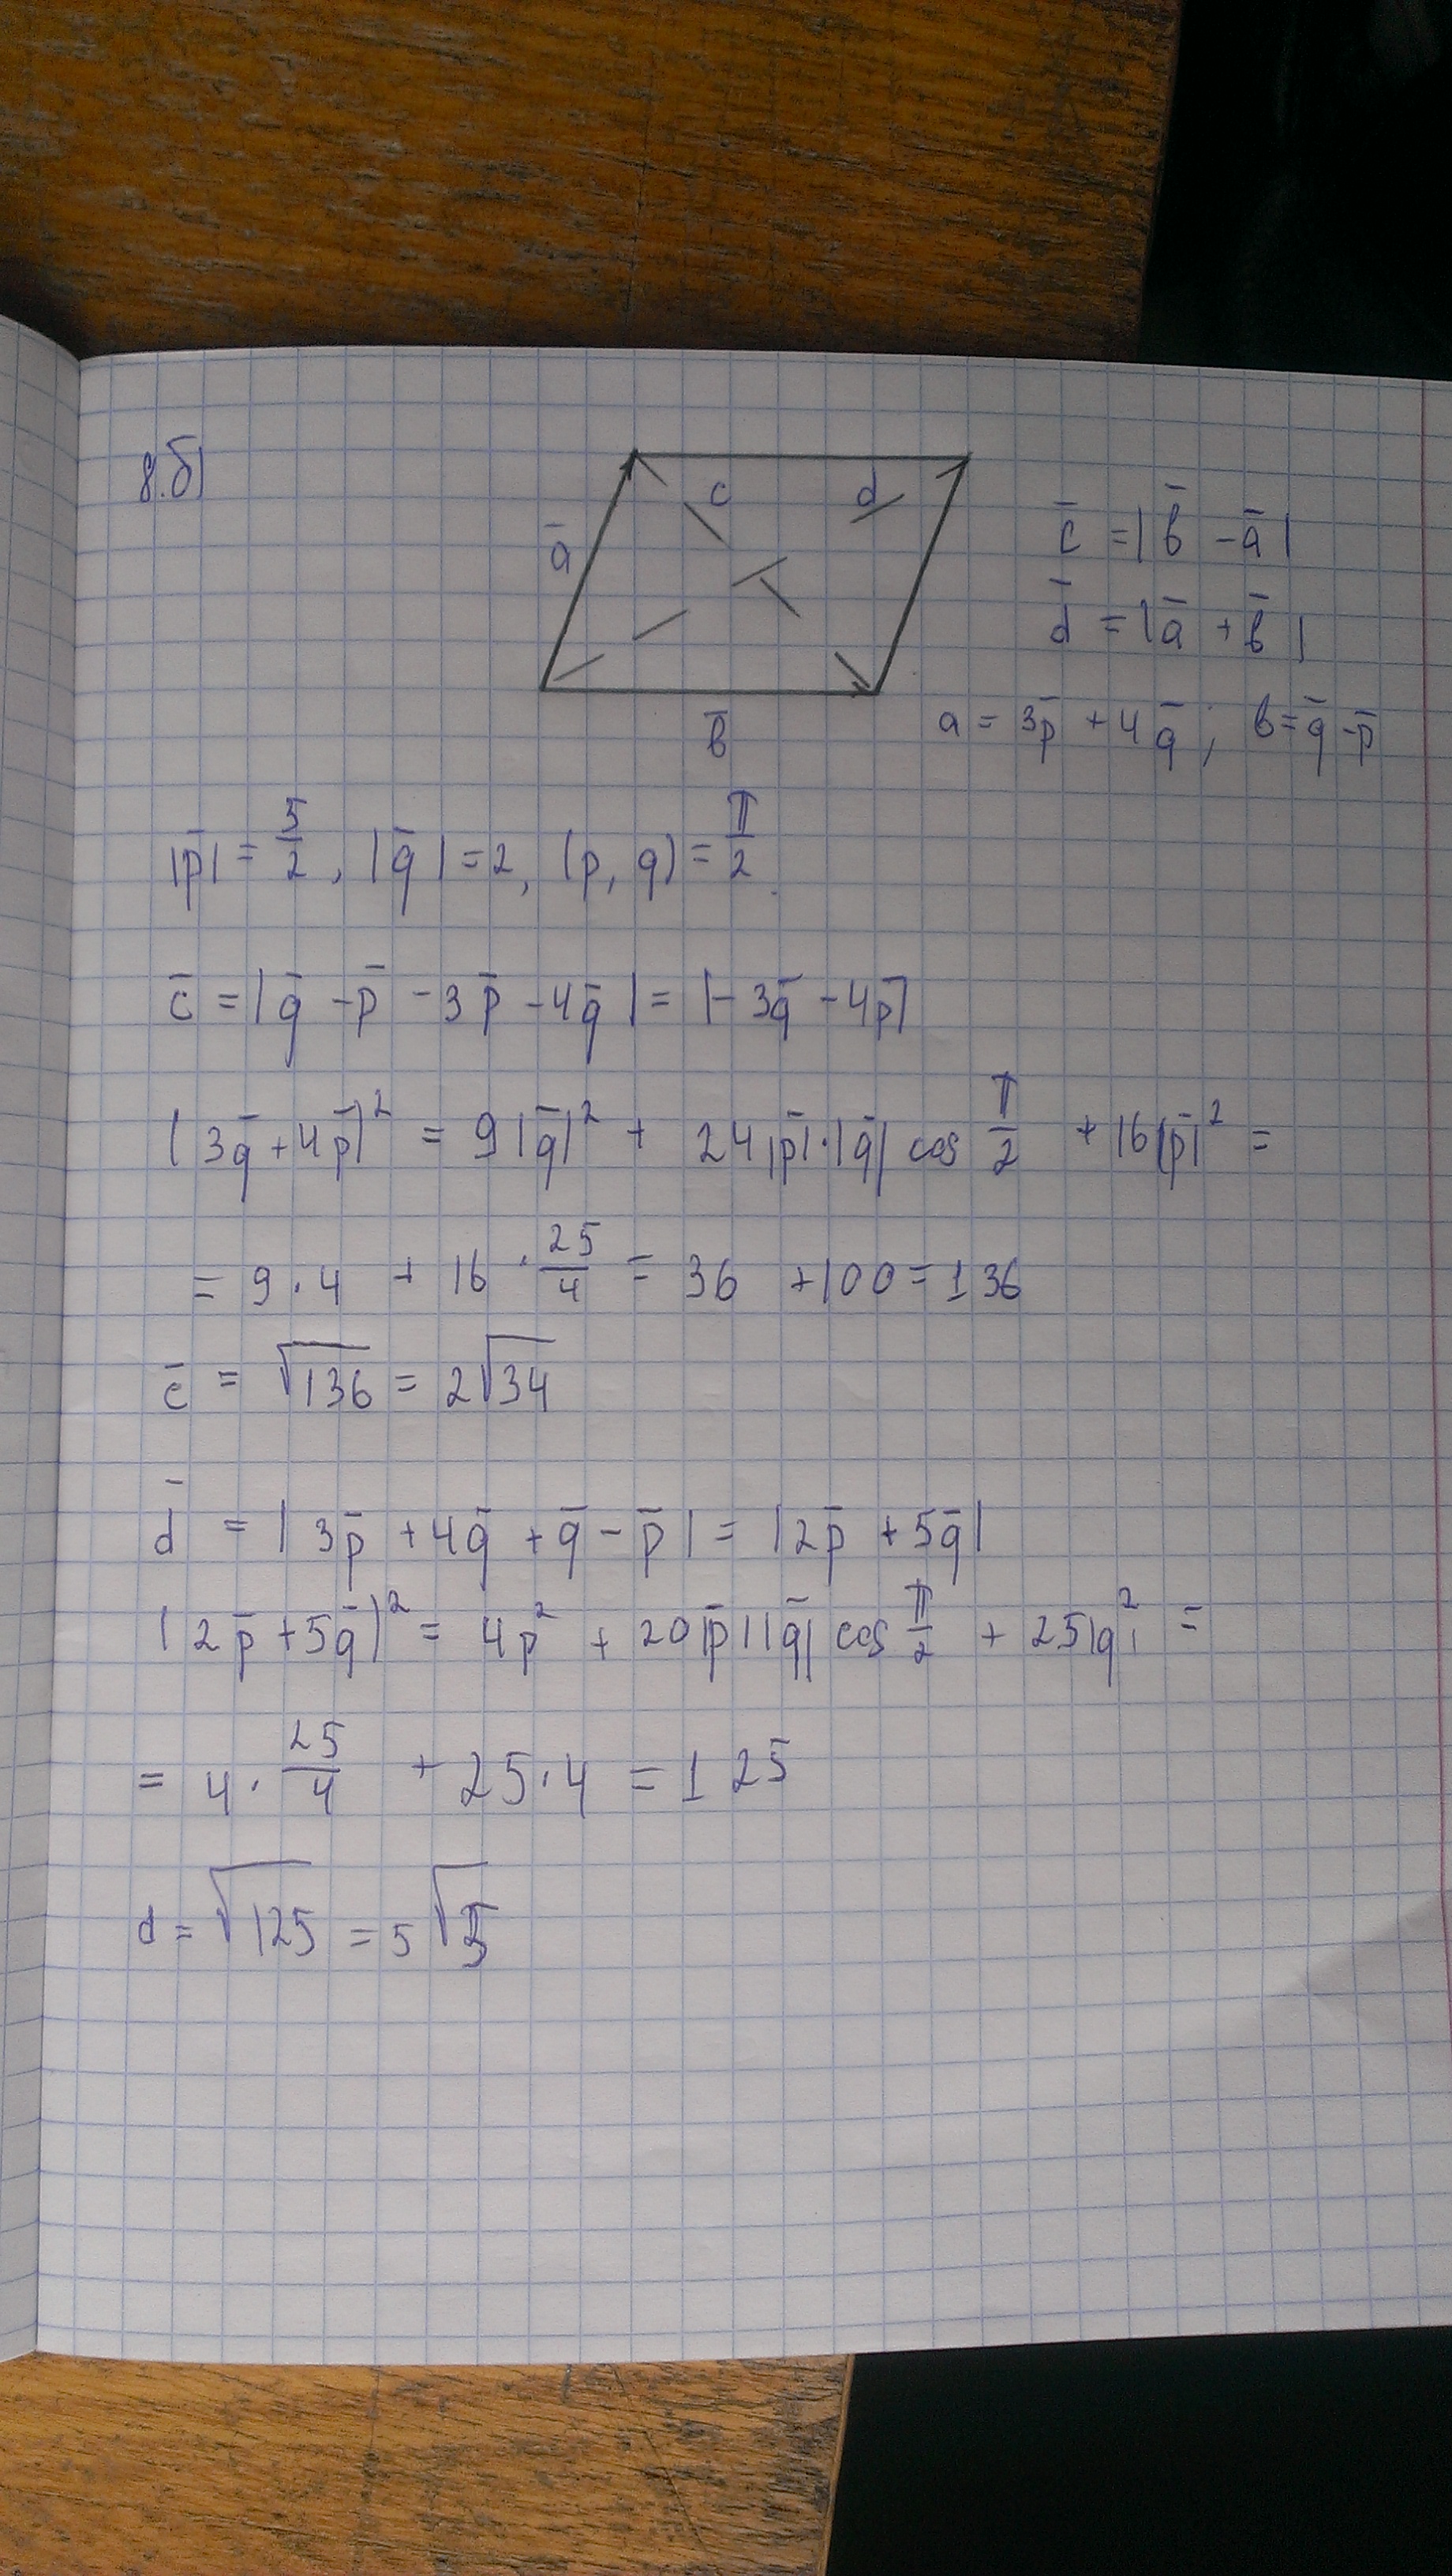 8.б)
c d
a̅
b̅
c̅ = |b̅ - a̅|
d̅ = |a̅ + b̅|
a = 3p̅ + 4q̅ ; b = q̅ - p̅
|p̅| = 5/2, |q̅| = 2, (p, q) = π/2.
c̅ = |q̅ - p̅ - 3p̅ - 4q̅| = |-3q̅ - 4p̅|
|3q̅ + 4p̅|² = 9|q̅|² + 24|p̅|·|q̅| cos π/2 + 16|p̅|² =
= 9·4 + 16·25/4 = 36 + 100 = 136
c̅ = √136 = 2√34
d̅ = |3p̅ + 4q̅ + q̅ - p̅| = |2p̅ + 5q̅|
|2p̅ + 5q̅|² = 4p² + 20|p̅||q̅| cos π/2 + 25|q|² =
= 4·25/4 + 25·4 = 125
d = √125 = 5√5